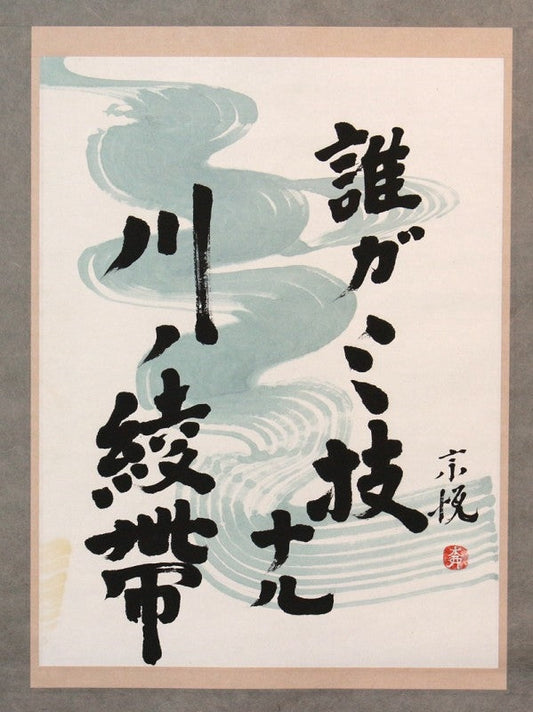 誰がミ技ナル
川ノ綾帯
宗悦